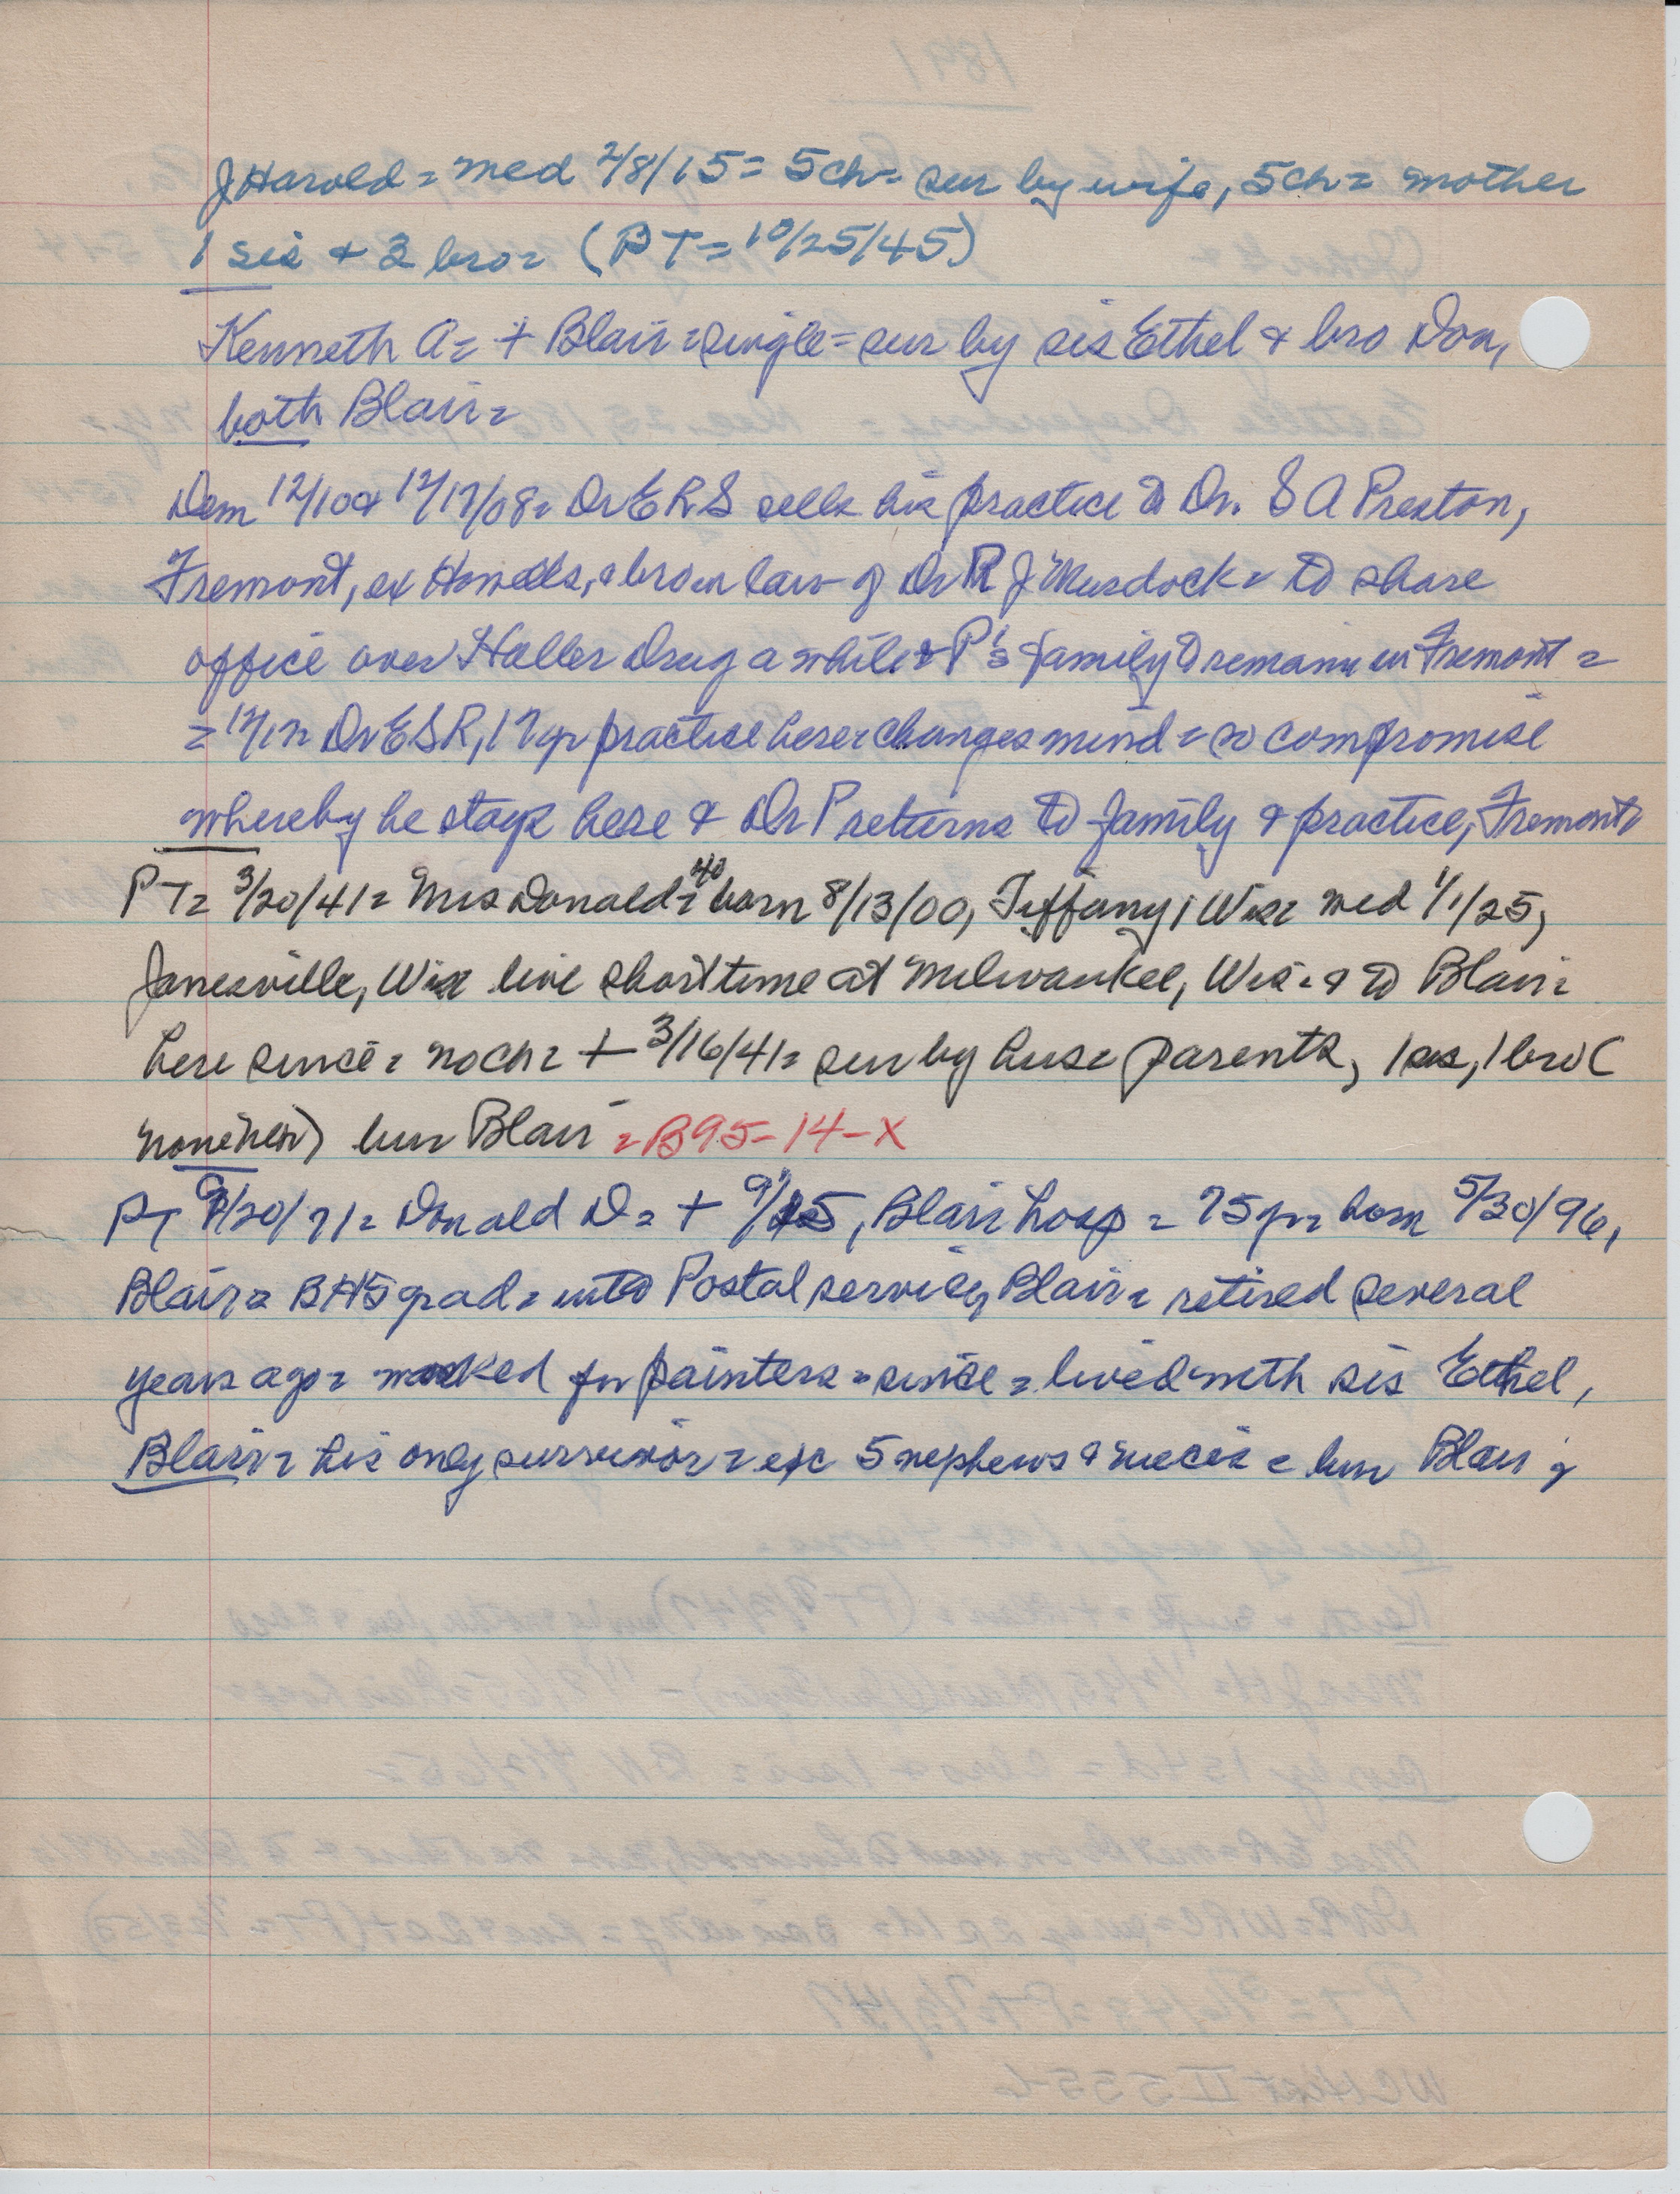 J Harold = med 2/8/15 = 5ch = sur by wife, 5ch = mother
1 sis + 3 bro = (PT = 10/25/45)
Kenneth A = + Blair = single = sur by sis Ethel & bro Don,
both Blair =
Dem 12/10 & 12/17/08 = Dr E R S sells his practice to Dr. S A Preston,
Fremont, ex Howells, & bro in law of Dr R J Murdock = to share
office over Haller Drug a while & P's family to remain in Fremont =
= 12/17 = Dr E S R, 17 yr practice here = changes mind = so compromise
whereby he stays here & Dr P returns to family & practice, Fremont =
PT = 3/20/41 = Mrs Donald = 40 = born 8/13/00, Tiffany, Wis = med 1/1/25,
Janesville, Wis = live short time at Milwaukee, Wis = & to Blair =
here since = no ch = + 3/16/41 = sur by hus = parents, 1 sis, 1 bro (
none here) bur Blair = B95-14-X
PT 9/20/71 = Donald D = + 9/15, Blair hosp = 75 yr = born 5/30/96,
Blair = BHS grad = into Postal service, Blair = retired several
years ago = worked for painters = since = lived with sis Ethel,
Blair = his only survivor = exc 5 nephews & nieces = bur Blair =